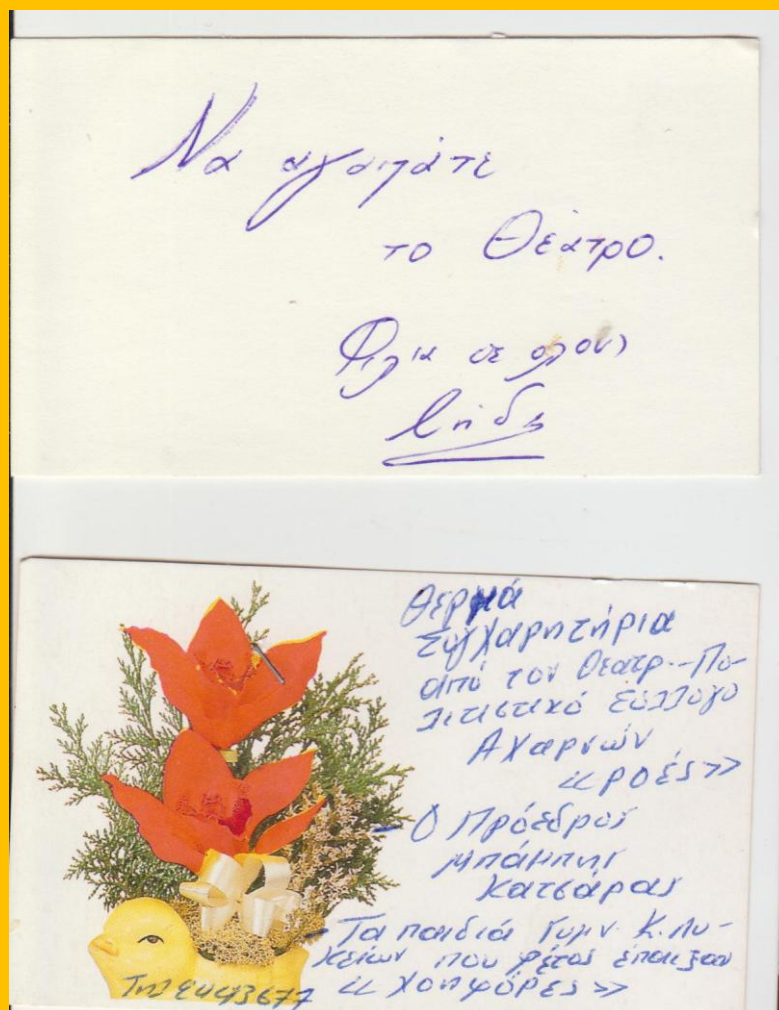 Να αγαπάτε
το Θέατρο.
Φιλιά σε όλους
Θερμά
Συγχαρητήρια
από τον Θεατρ.-Πο-
λιτιστικό Σύλλογο
Αχαρνών
«ΡΟέΣ»
- Ο Πρόεδρος
Μπάμπης
Κατσάρας
- Τα παιδιά Γυμν. κ. Λυ-
κείων που φέτος έπαιξαν
«Χοηφόρες»
Τηλ 2443677